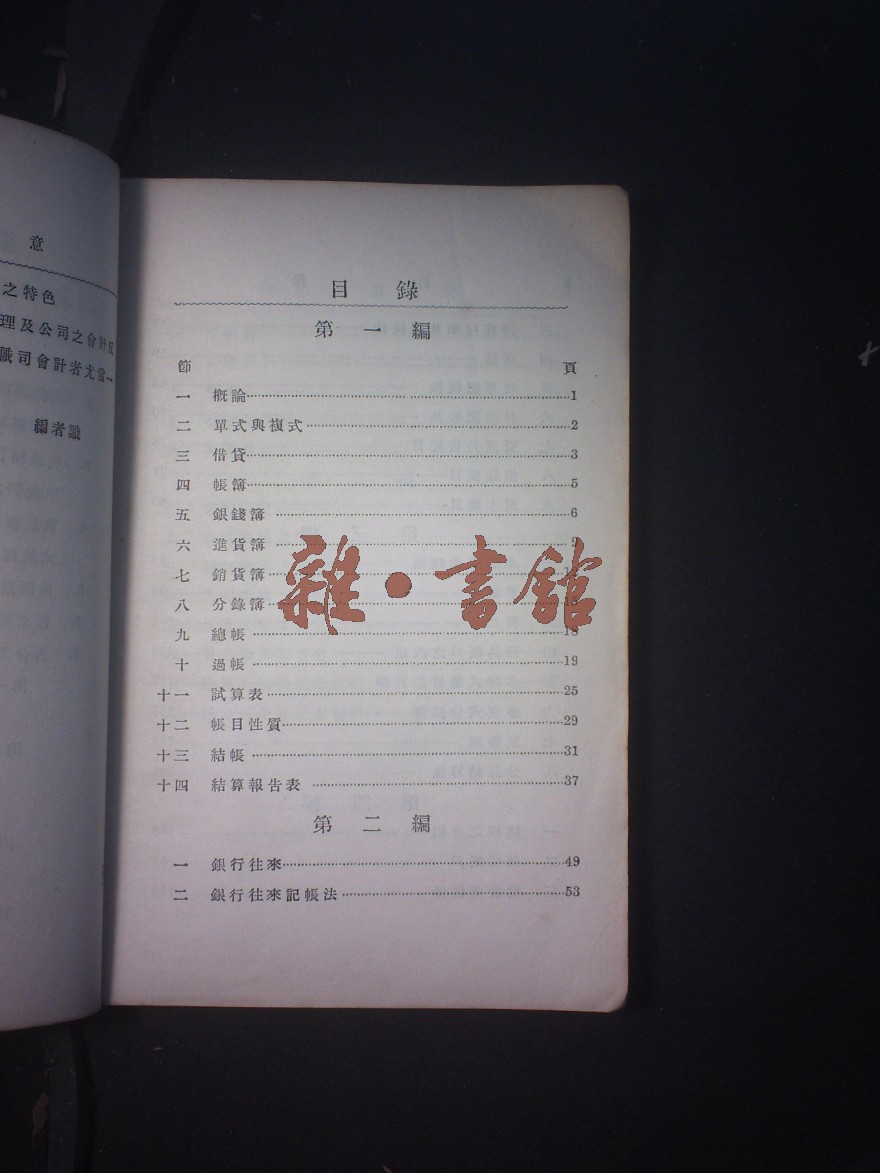 意
之特色
編者識
目錄
第一編
節 頁
一 概論 1
二 單式與複式 2
三 借貸 3
四 帳簿 5
五 銀錢簿 6
六 進貨簿 9
七 銷貨簿
八 分錄簿
九 總帳 18
十 過帳 19
十一 試算表 25
十二 帳目性質 29
十三 結帳 31
十四 結算報告表 37
第二編
一 銀行往來 49
二 銀行往來記帳法 53
雜·書館